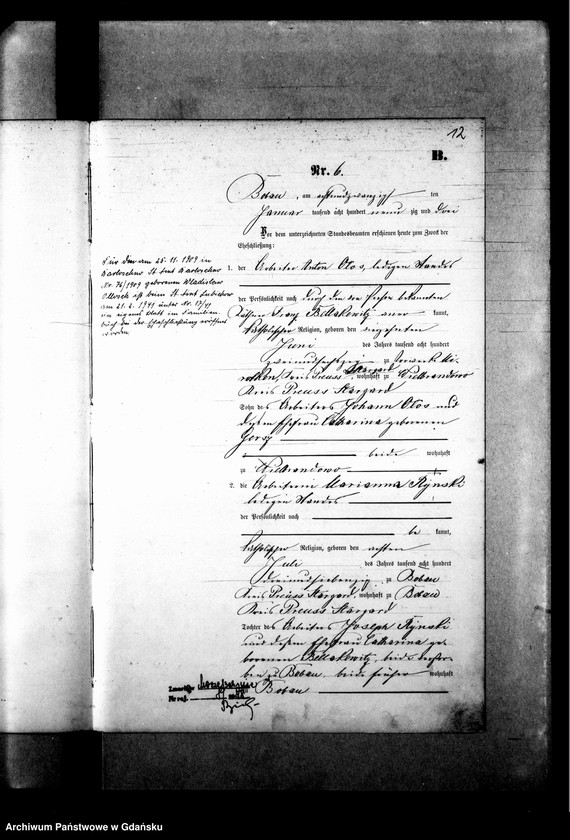 12
B.
Nr. 6.
Bobau, am achtundzwanzigsten
Januar tausend acht hundert neunzig und drei
Vor dem unterzeichneten Standesbeamten erschienen heute zum Zweck der
Eheschließung:
1. der Arbeiter Anton Olos, ledigen Standes
der Persönlichkeit nach durch den der Person bekannten
Franz Bellakowitz aner kannt,
katholischer Religion, geboren den
Juni des Jahres tausend acht hundert
zweiundsechszig zu Vorwerk
Kreis Preuss Stargard, wohnhaft zu Wilbrandowo
Kreis Preuss Stargard
Sohn des Arbeiters Johann Olos und
dessen Ehefrau Catharina geborenen
beide wohnhaft
zu Wilbrandowo
2. die Arbeiterin Marianna Rynski
ledigen Standes
der Persönlichkeit nach
be kannt,
katholischer Religion, geboren den achten
Juli des Jahres tausend acht hundert
dreiundsiebenzig zu Bobau
Kreis Preuss Stargard, wohnhaft zu Bobau
Kreis Preuss Stargard
Tochter des Arbeiters Joseph Rynski
und dessen Ehefrau Catharina ge
borenen Bellakowitz, beide verstor
ben zu Bobau, beide früher wohnhaft
Bobau
am 25. 11. 1909 in
Nr. 76/1909 geborenen Wladislaw
ist beim St. Amt Lubichow
am 21. 2. 1941 unter Nr. 17/41
ein eigenes Blatt im Familien
buch der Eheschließung eröffnet
worden.
Nr rej.
Archiwum Państwowe w Gdańsku